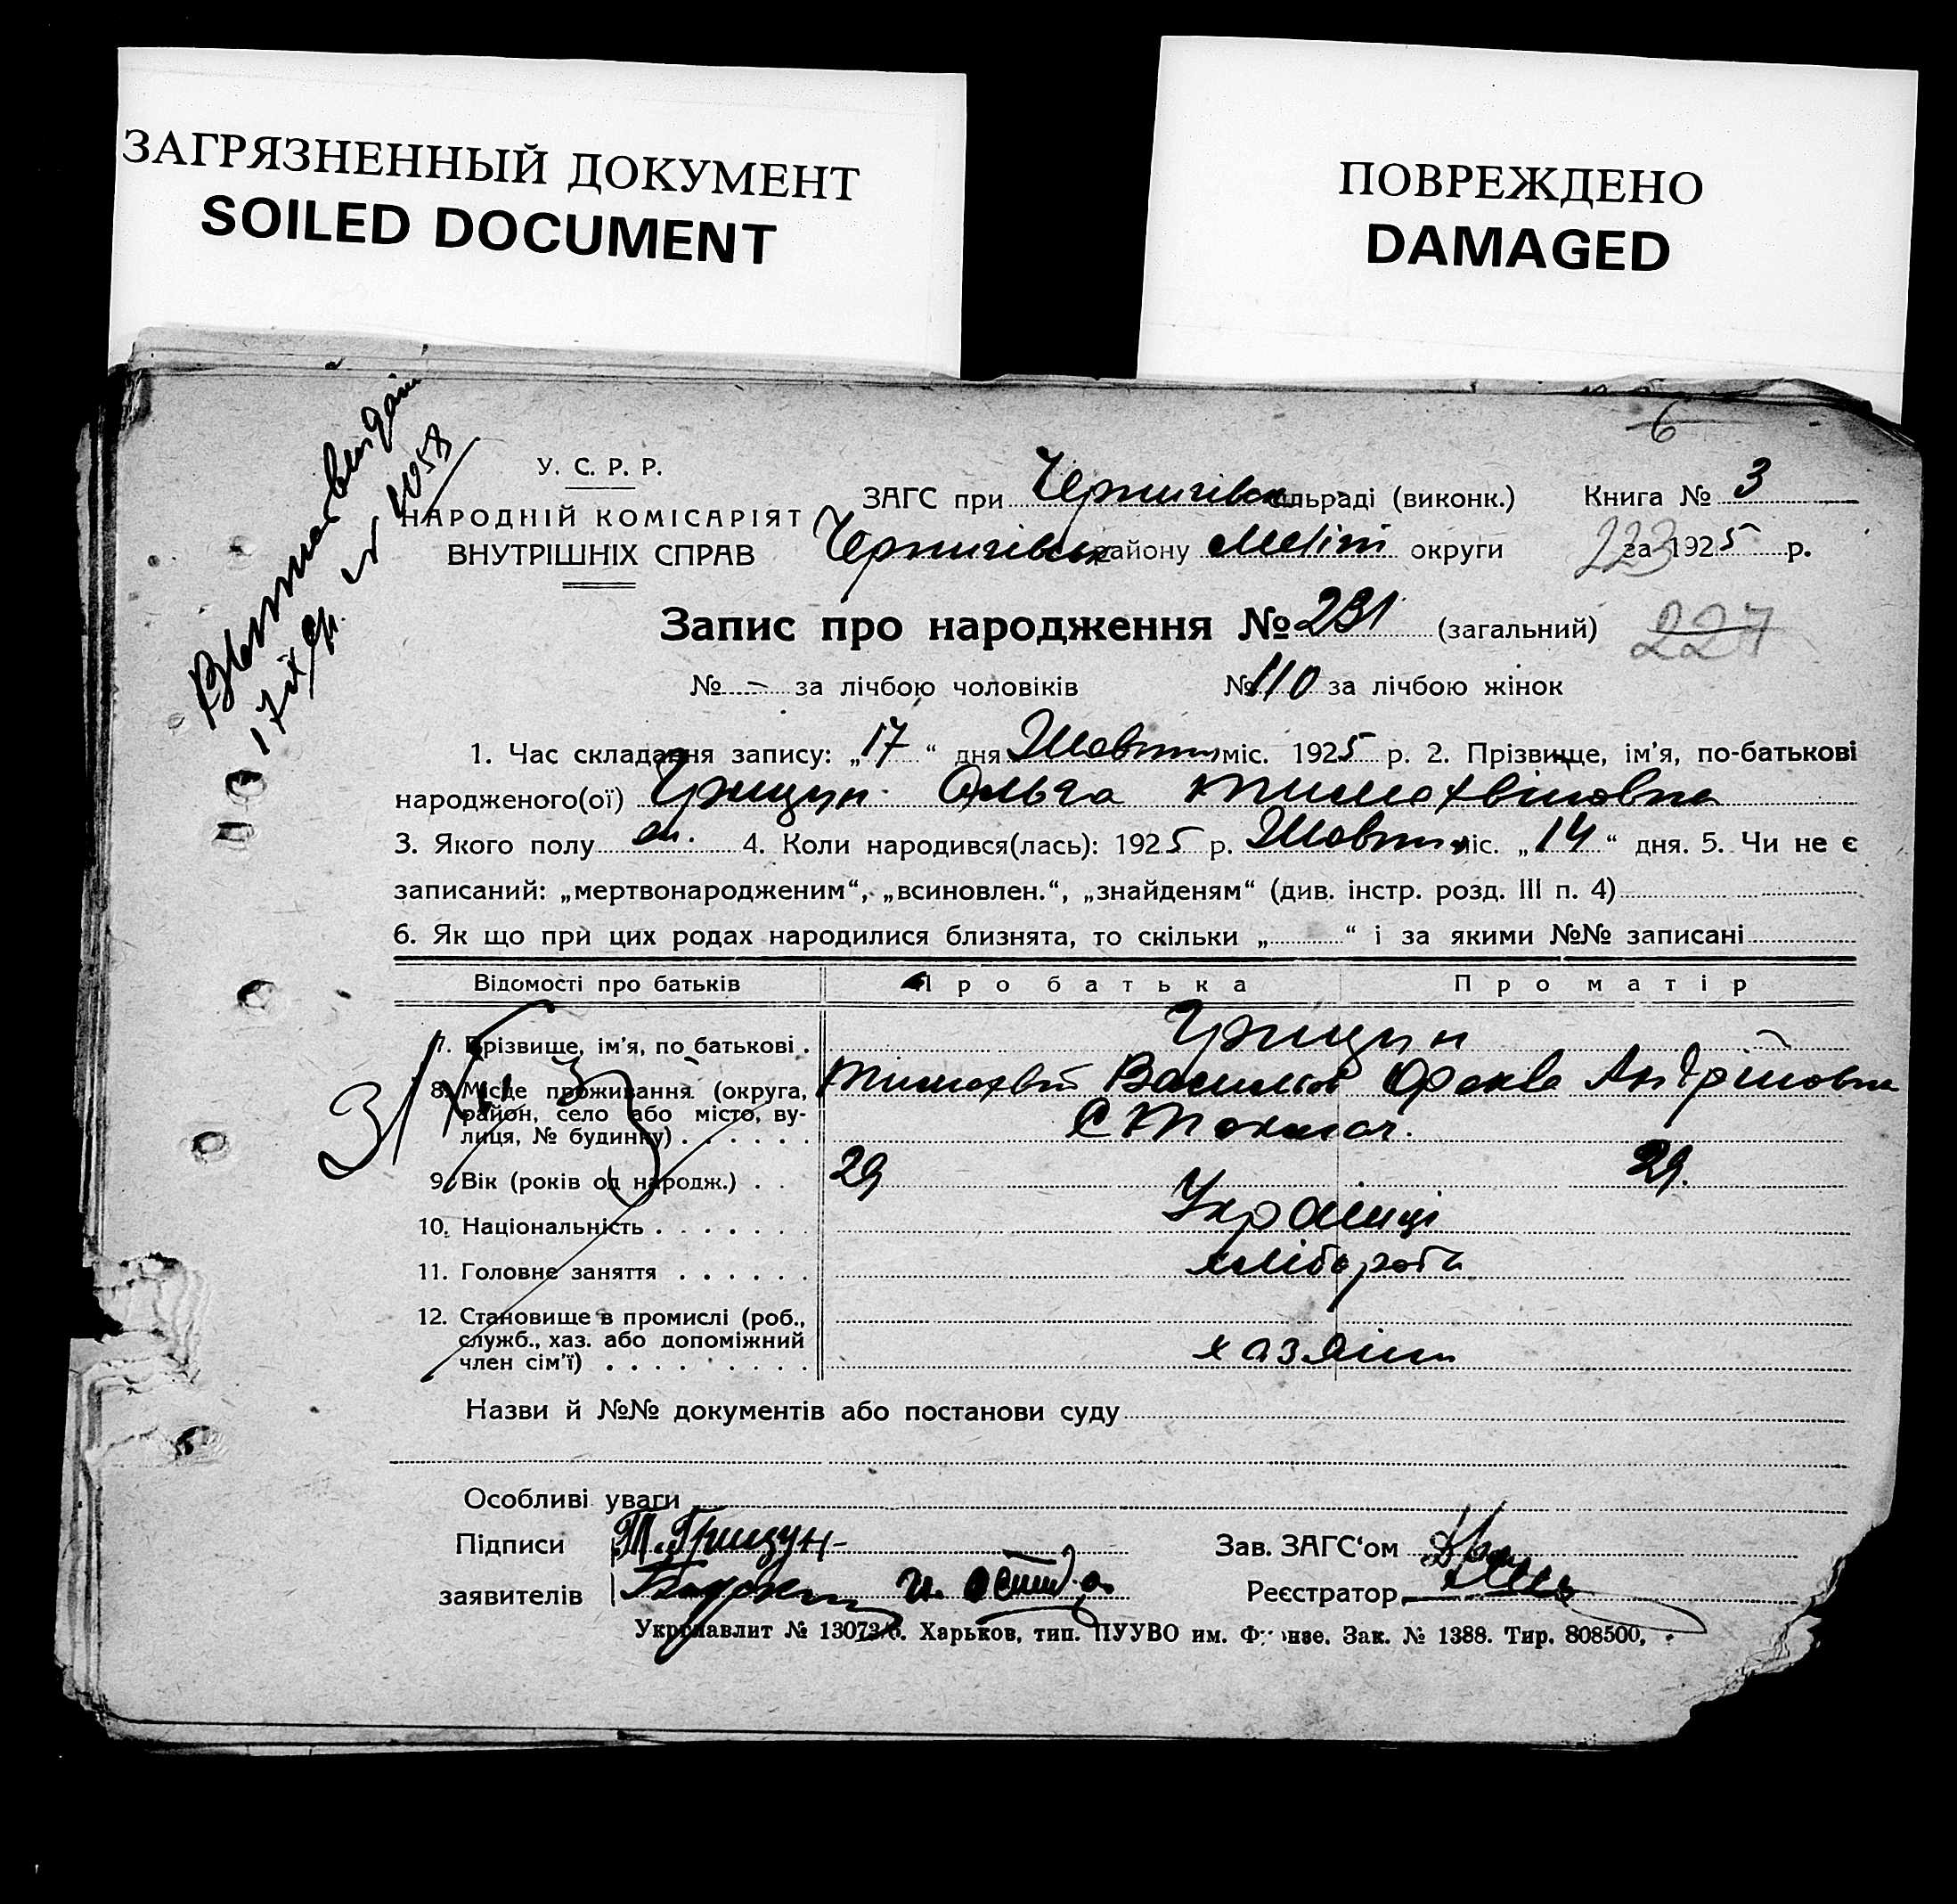 ЗАГРЯЗНЕННЫЙ ДОКУМЕНТ
SOILED DOCUMENT
ПОВРЕЖДЕНО
DAMAGED
6
У. С. Р. Р.
НАРОДНІЙ КОМІСАРІЯТ
ВНУТРІШНІХ СПРАВ
ЗАГС при Чернигівск сільраді (виконк.) Книга № 3
Чернигівськ району Меліт округи за 1925 р.
223
Запис про народження № 231 (загальний)
227
№ - за лічбою чоловіків № 110 за лічбою жінок
1. Час складання запису: „17“ дня Жовтн міс. 1925 р. 2. Прізвище, ім'я, по-батькові
народженого(ої) Грищун Ольга Тимофвіиовна
3. Якого полу 4. Коли народився(лась): 1925 р. Жовтн міс. „14“ дня. 5. Чи не є
записаний: „мертвонародженим“, „всиновлен.“, „знайденям“ (див. інстр. розд. III п. 4)
6. Як що при цих родах народилися близнята, то скільки „ “ і за якими №№ записані
Відомості про батьків Про батька Про матір
7. Прізвище, ім'я, по батькові . Грищун
8. Місце проживання (округа, Тимофвій Васильов Андрійовна
район, село або місто, ву-
лиця, № будинку) . . . . . . С Токмач.
9. Вік (років од народж.) . . 29 29.
10. Національність . . . . . . Україниці
11. Головне заняття . . . . . . хлібороби
12. Становище в промислі (роб.,
служб., хаз. або допоміжний
член сім'ї) . . . . . . . . . хазяіни
Назви й №№ документів або постанови суду
Особливі уваги
Підписи Т. Грищун Зав. ЗАГС‘ом
заявителів Реєстратор
Укрглавлит № 13073/б. Харьков, тип. ПУУВО им. Фрунзе. Зак. № 1388. Тир. 808500,